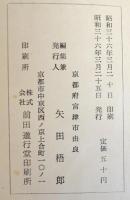 昭和三十六年三月二十日 印刷
昭和三十六年三月二十五日 発行
定価五十円
京都府宮津市由良
編集兼
発行人
矢田梧郎
京都市中京区西ノ京上合町一〇ノ一
印刷所
株式
会社
前田進行堂印刷所